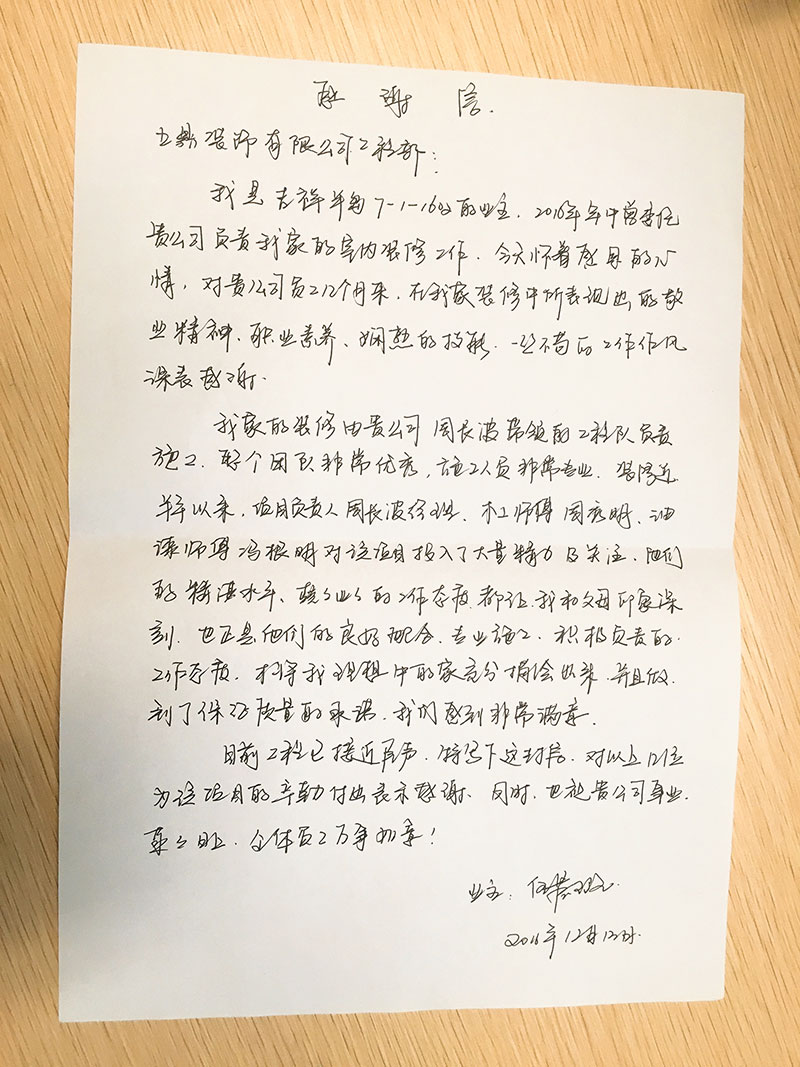 感谢信.
立鼎装饰有限公司工程部:
我是吉祥半岛7-1-16的业主.2016年年中曾委托
贵公司负责我家的室内装修工作.今天怀着感恩的心
情,对贵公司员工几个月来,在我家装修中所表现出的敬
业精神、职业素养、娴熟的技能、一丝不苟的工作作风
深表感谢.
我家的装修由贵公司周长波带领的工程队负责
施工.整个团队非常优秀,施工人员非常专业.装修近
半年以来,项目负责人周长波经理、木工师傅周秀明、油
漆师傅冯根明对该项目投入了大量精力及关注.他们
的精湛水平、兢兢业业的工作态度都让我和父母印象深
刻.也正是他们的良好配合、专业施工、积极负责的
工作态度.才将我理想中的家充分描绘出来.并且做
到了保证质量的承诺.我们感到非常满意.
目前工程已接近尾声.特写下这封信.对以上几位
为该项目的辛勤付出表示感谢.同时.也祝贵公司事业
蒸蒸日上.全体员工万事如意!
业主:
2016年12月12日.